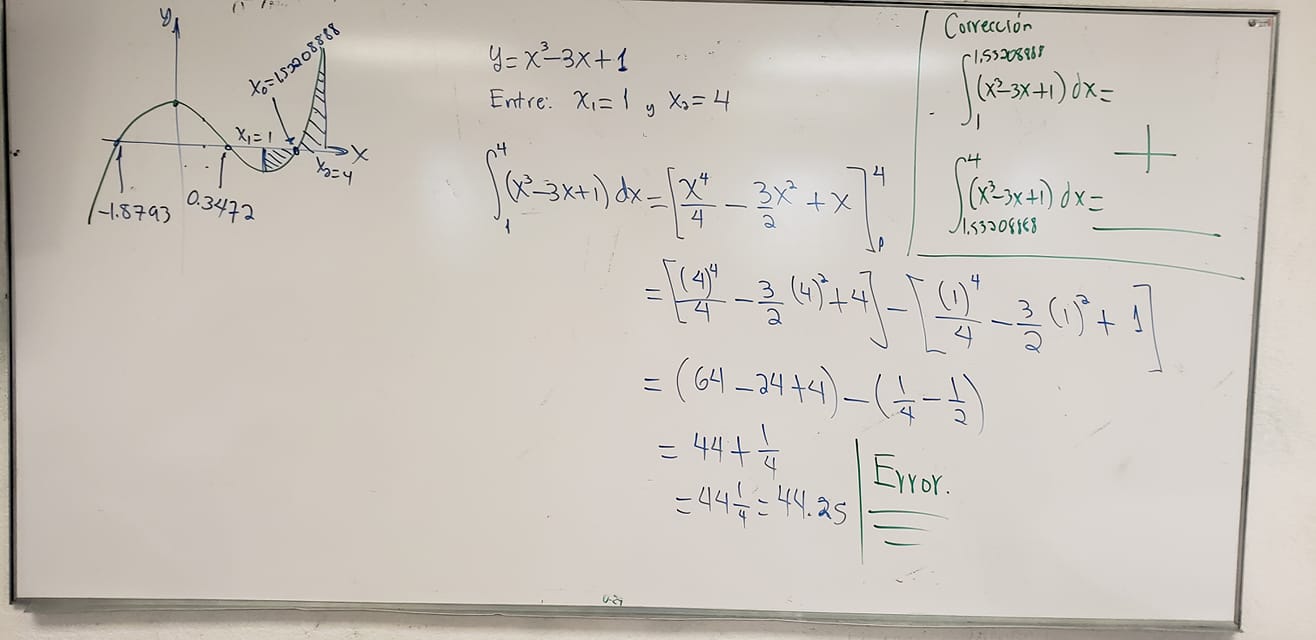 y
X₀=1.53208888
X₁=1
X
X₂=4
-1.8793
0.3472
y=x³-3x+1
Entre: X₁=1 y X₂=4
∫₁⁴(x³-3x+1) dx=[x⁴/4 - 3x²/2 + x]₁⁴
=[(4)⁴/4 - 3/2 (4)²+4] - [(1)⁴/4 - 3/2 (1)² + 1]
= (64-24+4) - (1/4 - 1/2)
= 44+1/4
=44 1/4 = 44.25
Error.
Corrección
∫₁^1.53208888 (x³-3x+1) dx=
+
∫_1.53208888^4 (x³-3x+1) dx=